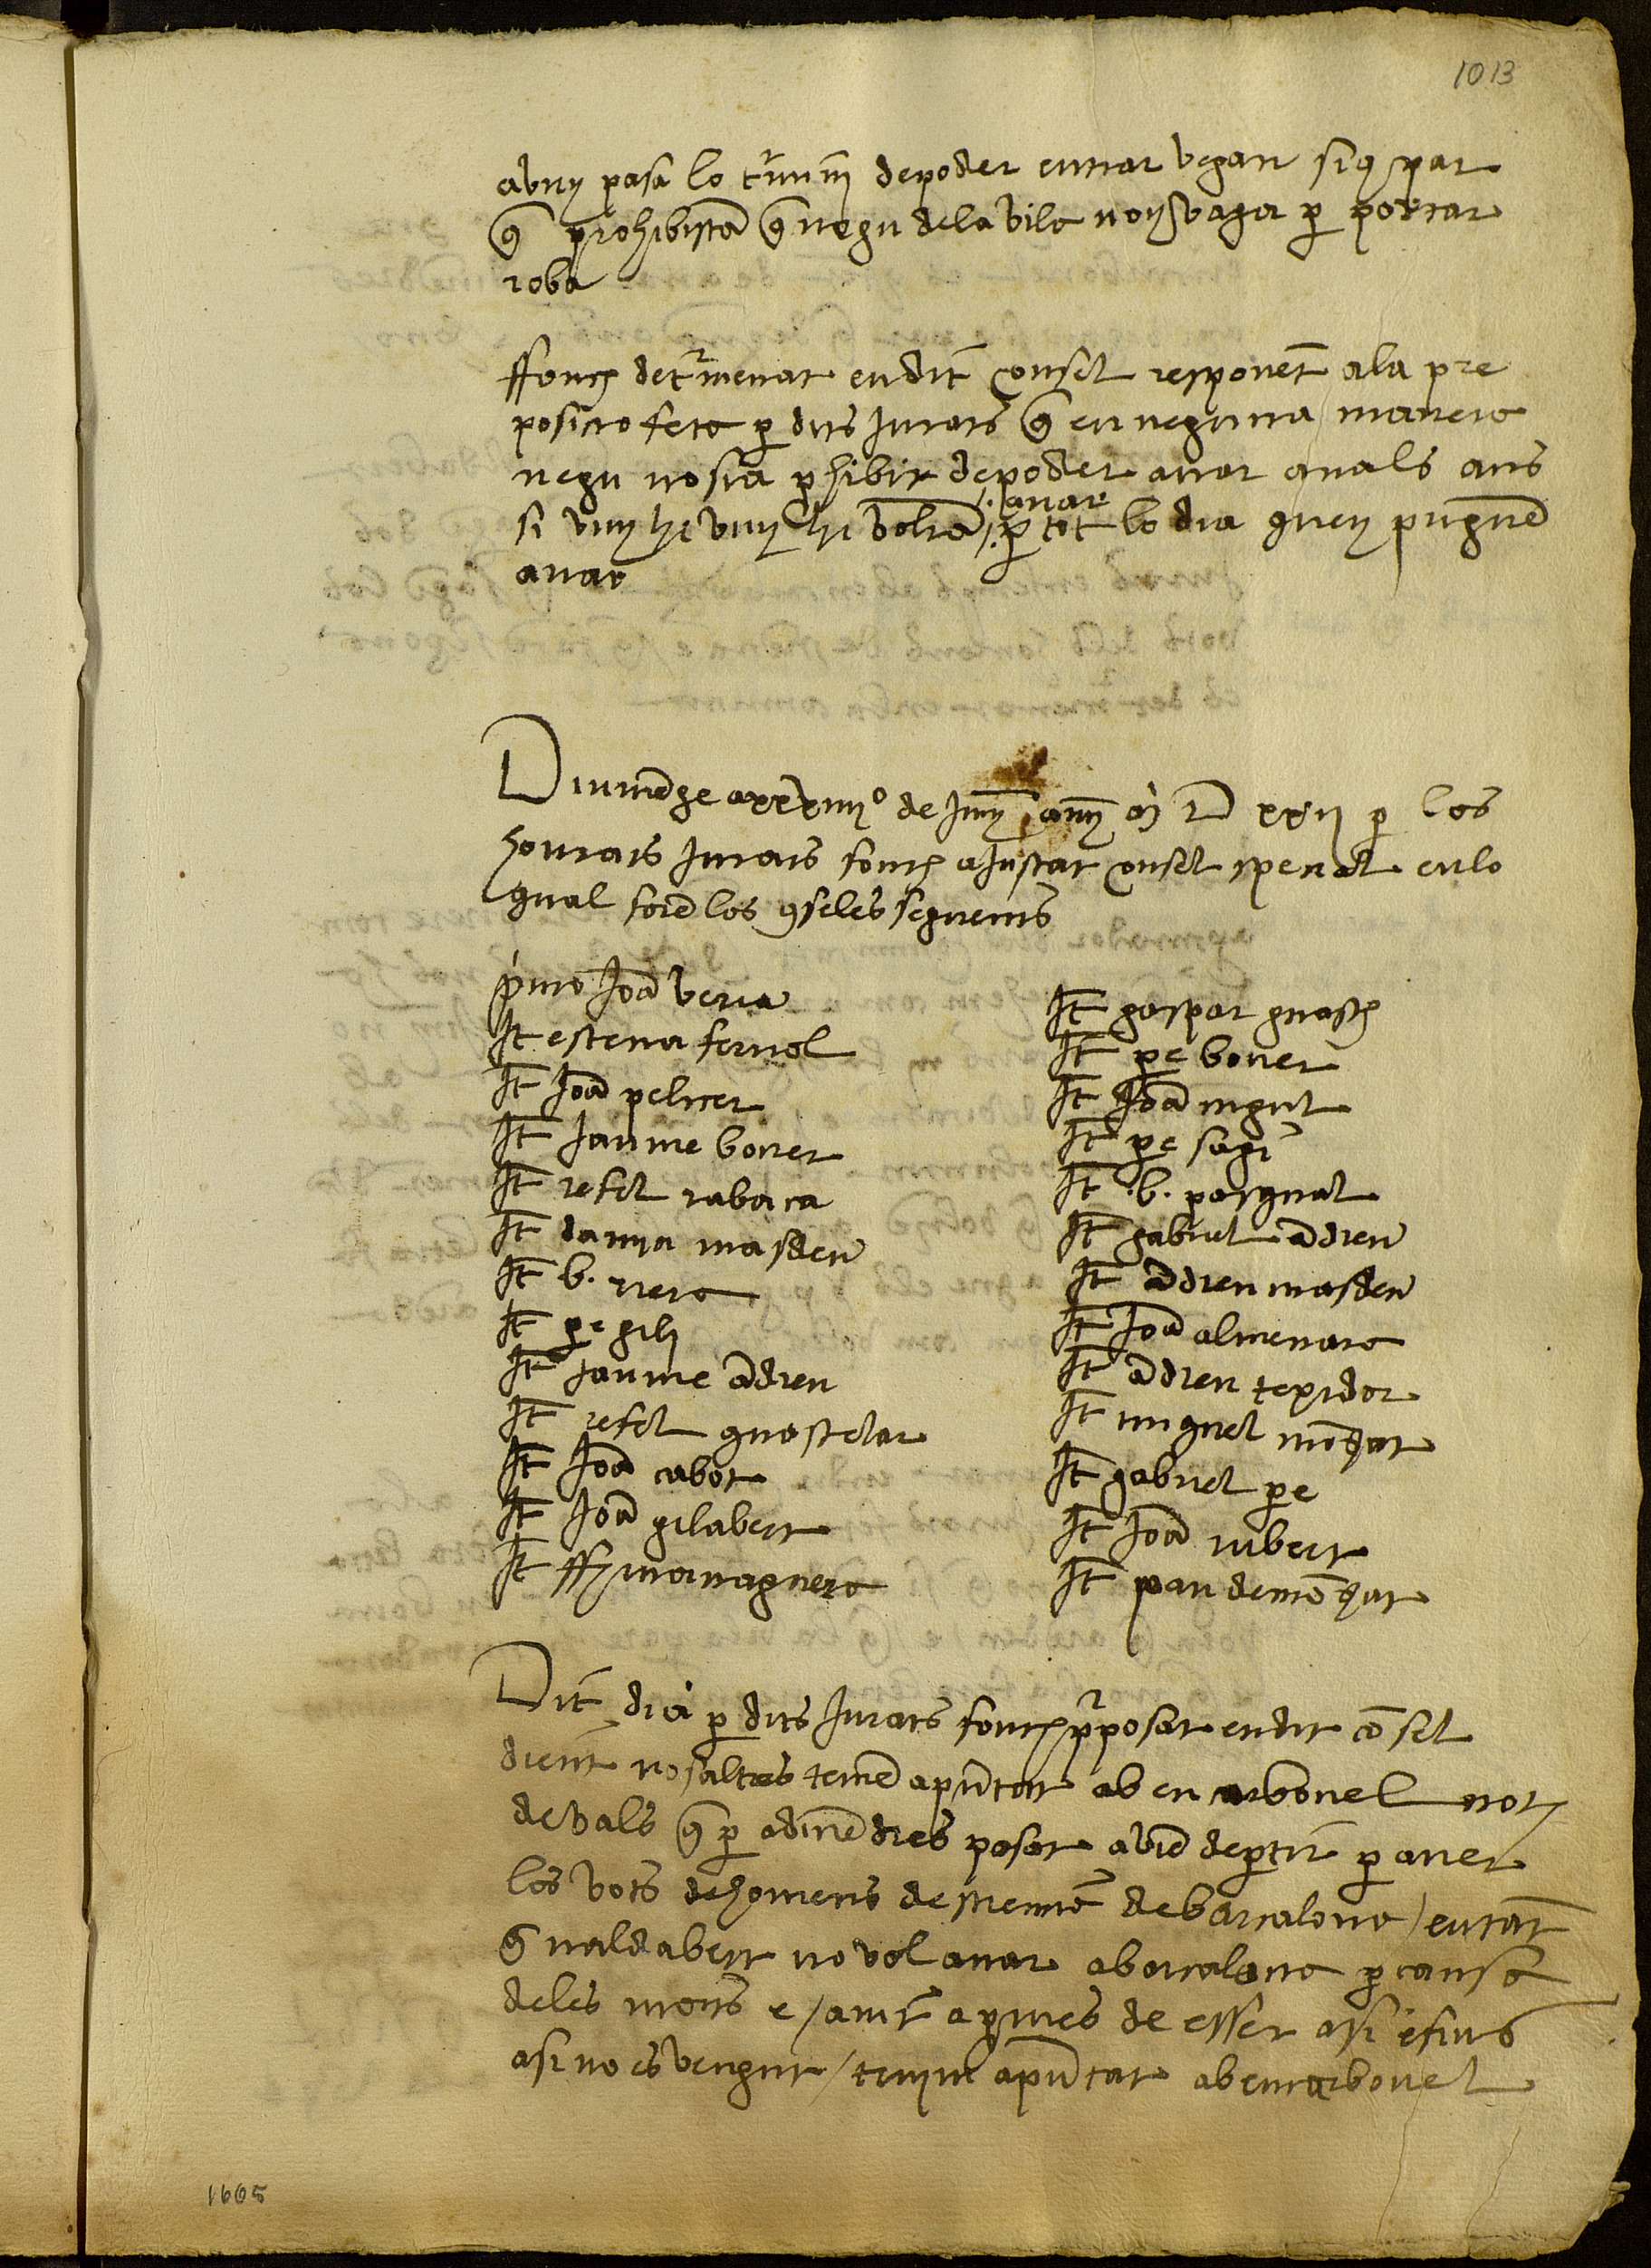 1013
avuy pasa lo t'mini de poder entrar vegan si q par
q prohibisca q negu dela vila noy vaga p portar
roba
ffonch det'menat en dit consel responet ala pre
posicio feta p dits Jurats q en neguna manera
negu no sia phibit de poder anar a vals ans
si vuy hi vuy hi volra anar p tot lo dia quey pugue
anar
Diumege a xxviiij° de Juny any M D xxij p los
honrats Jurats fonch aJustat consel general en lo
qual fore los qseles seguents
primo Joa veria
It esteva ferrol
It Joa pelicer
It Jaume bover
It rafel rabaca
It damia masdeu
It b. riera
It pe gili
It Jaume adreu
It rafel guastelar
It Joa cabot
It Joa gilabert
It ffr maimaguera
It gaspar guasch
It pe bover
It Joa mgut
It pe sagi
It .b. pasqual
It gabriel adreu
It adreu masdeu
It Joa almenara
It adreu texidor
It miquel mogat
It gabriel pe
It Joa rubert
It pau de mogat
Dit dia p dits Jurats fonch pposat en dit cosel
dient nosaltres tenie apuntat ab en carbonel not
de vals q p adivedres pasat avie de ptir p aver
los vots de homens de sciencie de barcalona / en tat
q naldabert no vol anar a barcalona p causa
deles morts e / avit apmes de esser asi e fins
asi no es vengut / tenim apuntat ab en carbonel
1605